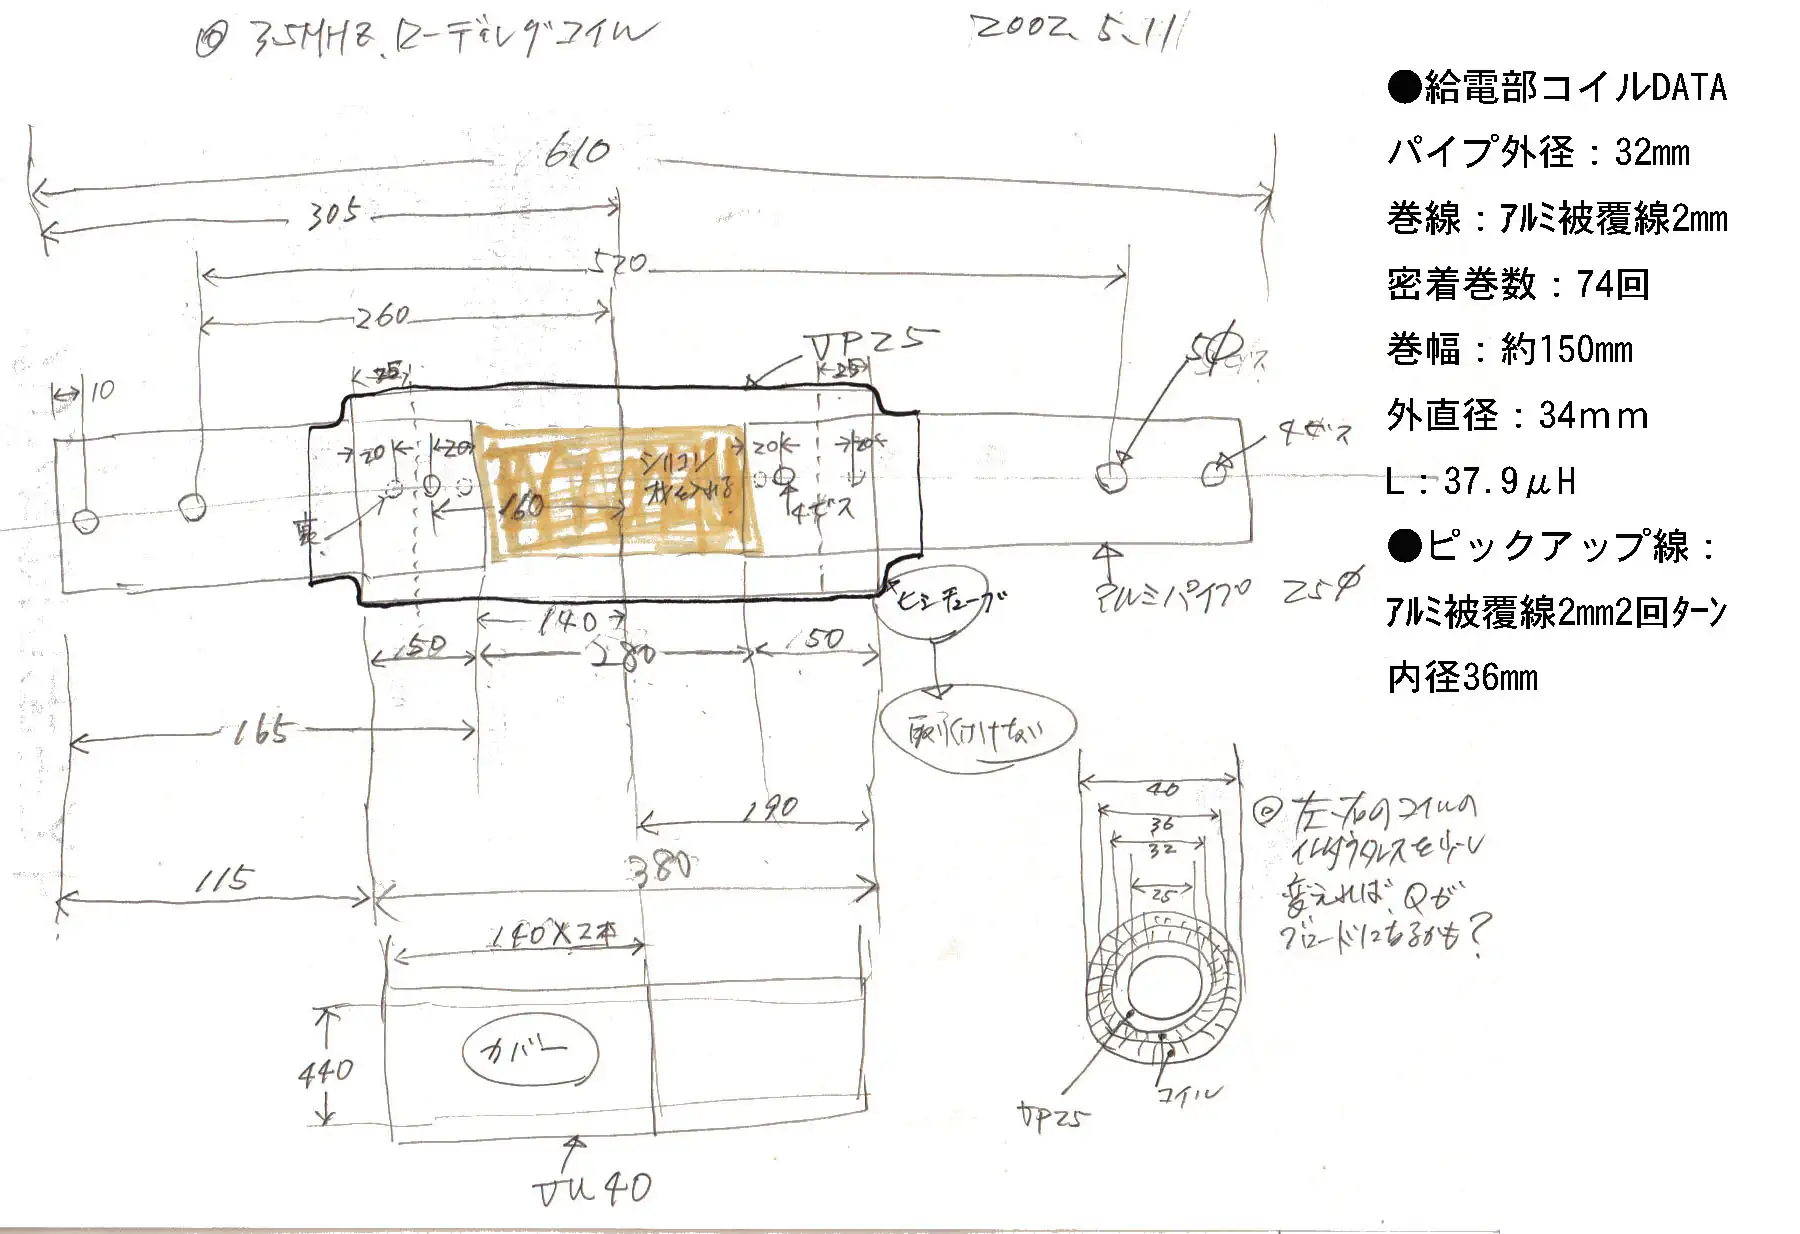 ◎ 3.5MHZ.ローディングコイル
2002.5.11
●給電部コイルDATA
パイプ外径：32mm
巻線：ｱﾙﾐ被覆線2mm
密着巻数：74回
巻幅：約150mm
外直径：34ｍｍ
L：37.9μH
●ピックアップ線：
ｱﾙﾐ被覆線2mm2回ﾀｰﾝ
内径36mm
610
305
520
260
VP25
5φビス
10
25
25
4ビス
20
20
シリコン
20
20
棒を入れる
160
4ビス
裏
アルミパイプ 25φ
ヒシチューブ
140
50
280
50
取り付けない
165
190
40
36
32
25
◎左右のコイルの
インダクタンスを少し
変えれば、Qが
ブロードになるかも?
115
380
140×2本
440
カバー
VP25
コイル
VU40